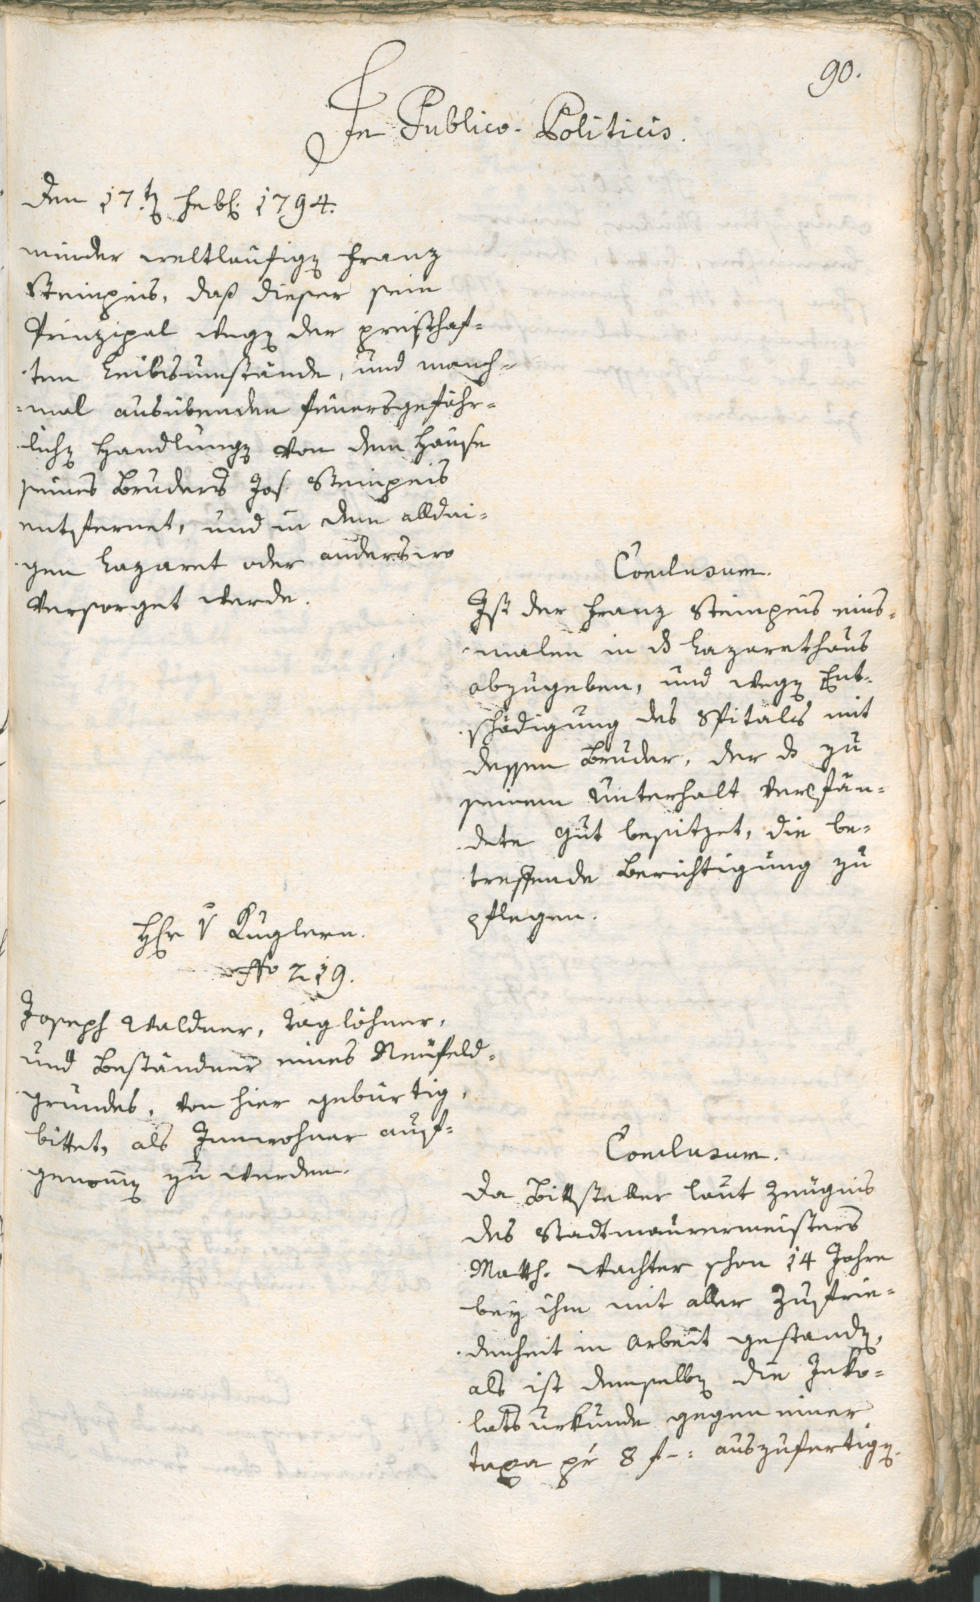 90.
In Publico-Politicis.
Den 17.t Febr. 1794.
minder weltläufigen Franz
Steinpeis, daß dieser sein
Prinzipal wegen der presthaf-
ten Leibsumstände, und manch-
mal ausübenden feuersgefähr-
lichen Handlungen von dem Hause
seines Bruders Jos. Steinpeis
entfernet, und in dem alldai-
gen Lazaret oder anderswo
versorget werde.
Conclusum.
Ist der Franz Steinpeis eins-
malen in ds Lazarethaus
abzugeben, und wegen Ent-
schädigung des Spitals mit
dessen Bruder, der ds zu
seinem Unterhalt verpfän-
dete Gut besitzet, die be-
treffende Berichtigung zu
pflegen.
Hr v Kuglern.
No 219.
Joseph Waldner, Taglöhner,
und Beständner eines Neufeld-
grundes, von hier gebürtig,
bittet, als Innwohner auf-
genommen zu werden.
Conclusum.
Da Bittsteller laut Zeugnis
des Stadtmaurermeisters
Matth. Wachter schon 14 Jahre
bey ihm mit aller Zufrie-
denheit in Arbeit gestanden,
als ist demselben die Inko-
lats Urkunde gegen einer
Taxa pr 8 f -: auszufertigen.